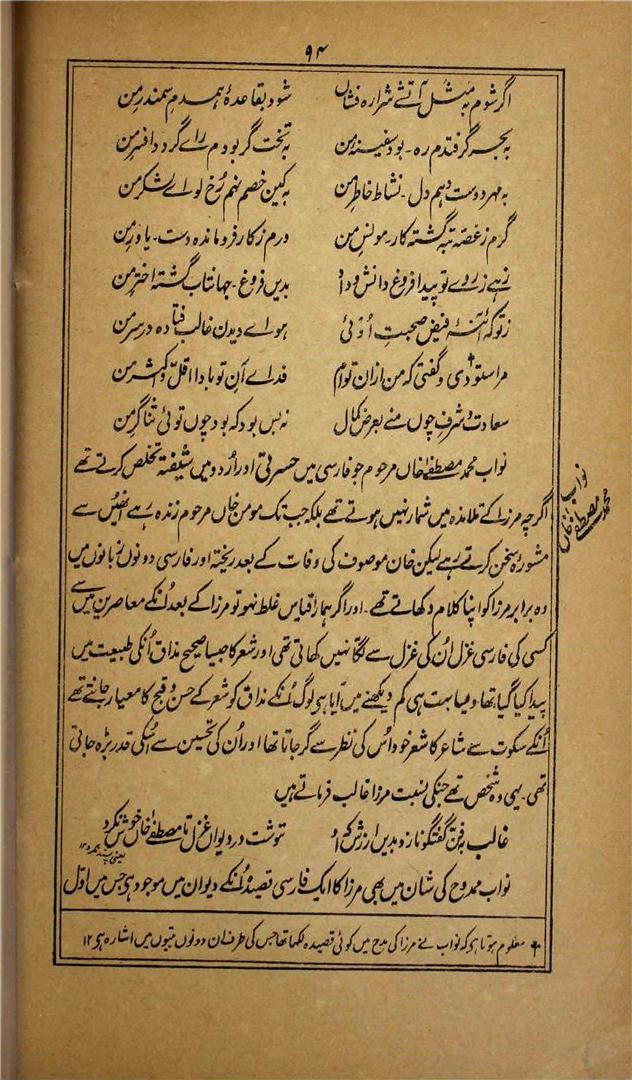 ۹۴
اگر شوم بہ مثل آتشے شرارہ فشاں شود بقاعدۂ ہمدم سمندر من
بہ بحر گر فتدم رہ۔ بود سفینہ من بہ تخت گر بودم راے گردد افسر من
بہ مہر دوست دہم دل۔ نشاط خاطر من بہ کین خصم نہم رُخ لواے لشکر من
گرم ز غصہ تبہ گشتہ کار۔ مونس من ورم ز کار فرو ماندہ دست۔ یاور من
زہے ز روے تو پیدا فروغ دانش و داد بدیں فروغ۔ جہانتاب گشتہ اختر من
ز تو کہ آئنۂ فیض صحبت اُوئی ہواے دیدن غالب فتادہ در سر من
مرا ستودی و گفتی کہ من ازان توام فداے آن تو بادا اقل و اکثر من
سعادت و شرف چوں منے بعرض کمال نہ بس بود کہ بود چوں توئی ثناگر من
نواب محمد مصطفےٰ خاں مرحوم جو فارسی میں حسرتی اور اُردو میں شیفتہ تخلص کرتے تھے
نواب محمد مصطفےٰ خاں
اگرچہ مرزا کے تلامذہ میں شمار نہیں ہوتے تھے بلکہ جب تک مومن خاں مرحوم زندہ رہے اُنھیں سے
مشورۂ سخن کرتے رہے لیکن خان موصوف کی وفات کے بعد ریختہ اور فارسی دونوں زبانوں میں
وہ برابر مرزا کو اپنا کلام دکھاتے تھے۔ اور اگر ہمارا قیاس غلط نہو تو مرزا کے بعد اُنکے معاصرین میں سے
کسی کی فارسی غزل اُن کی غزل سے لگّا نہیں کھاتی تھی اور شعر کا جیسا صحیح مذاق اُنکی طبیعت میں
پیدا کیا گیا تھا ویسا بہت ہی کم دیکھنے میں آیا ہی لوگ اُنکے مذاق کو شعر کے حسن و قبح کا معیار جانتے تھے
اُنکے سکوت سے شاعر کا شعر خود اُس کی نظر سے گر جاتا تھا اور اُن کی تحسین سے اُسکی قدر بڑہ جاتی
تھی۔ یہی وہ شخص تھے جنکی نسبت مرزا غالب فرماتے ہیں
غالب بہ فن گفتگو نازد بدیں ارزش کہ اُو ننوشت در دیواں غزل تا مصطفےٰ خاں خوش نکرد
نواب ممدوح کی شان میں بھی مرزا کا ایک فارسی قصیدہ اُنکے دیوان میں موجود ہی جس میں اول
معلوم ہوتا ہی کہ نواب نے مرزا کی مدح میں کوئی قصیدہ لکھا تھا جس کی طرف ان دونوں بیتوں میں اشارہ ہی ۱۲